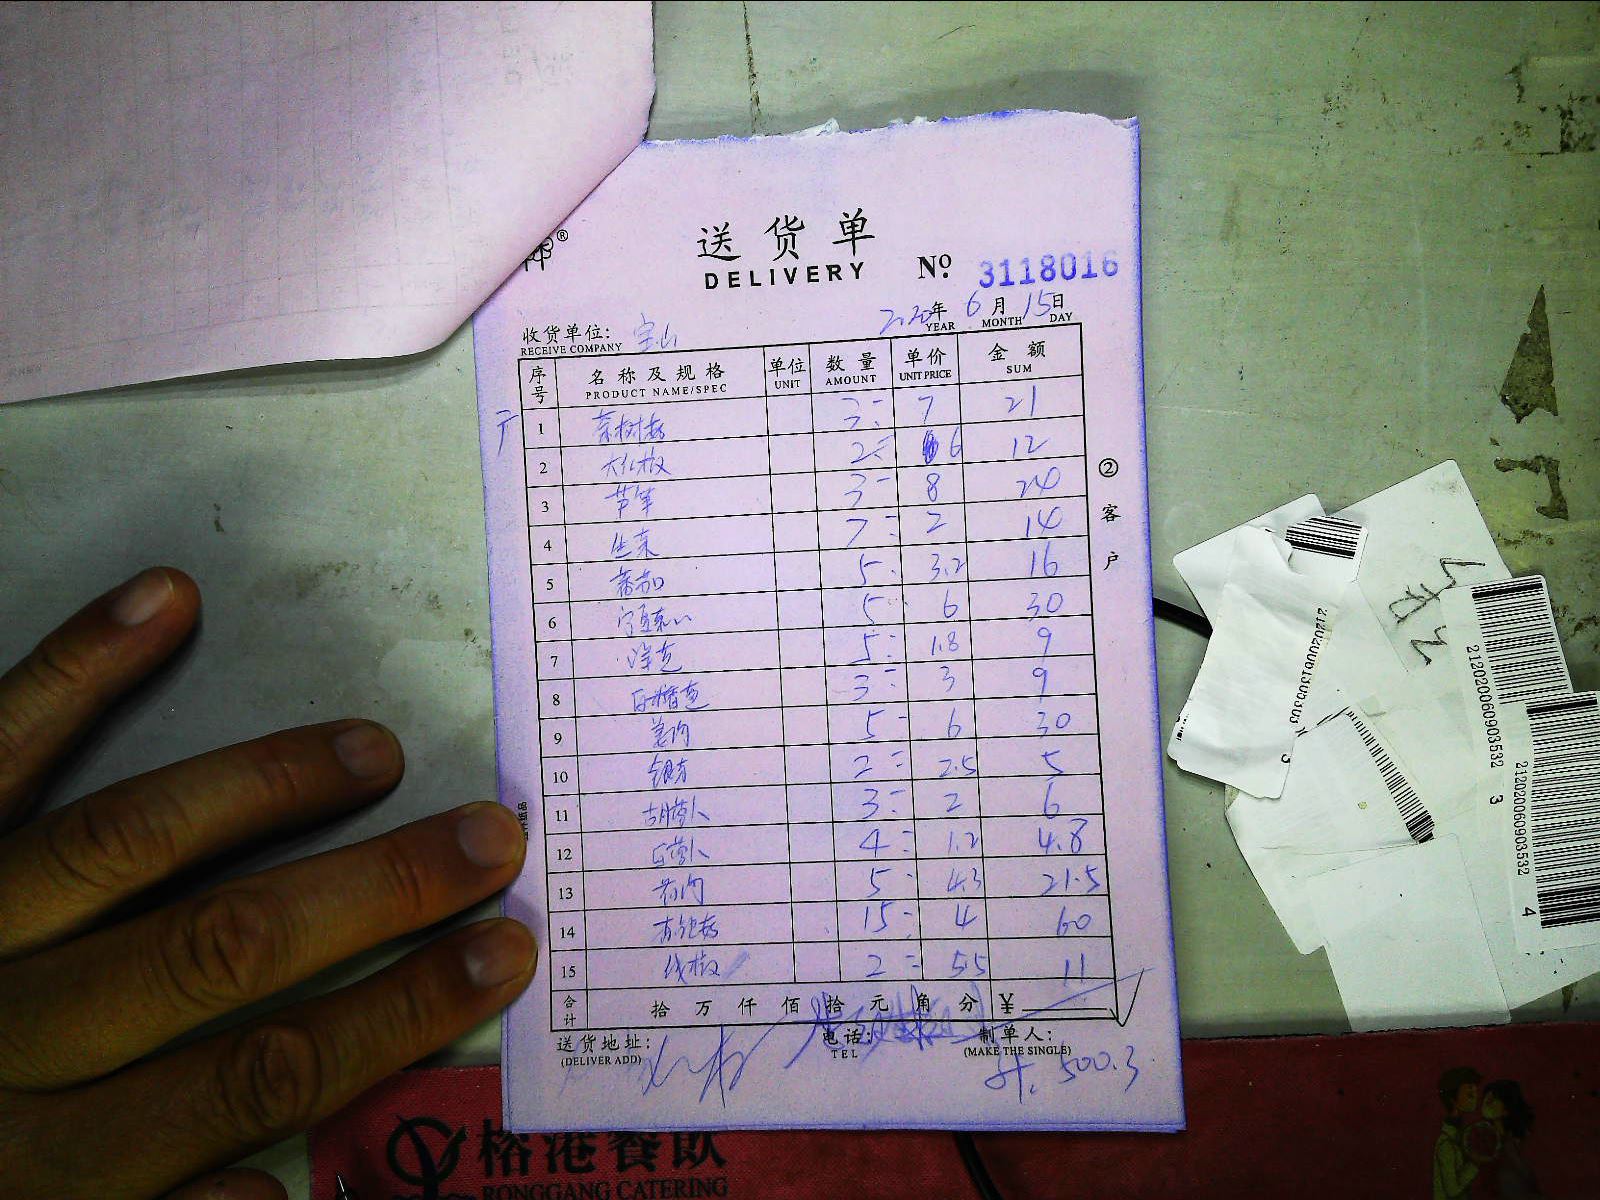 ®
送货单
DELIVERY
No. 3118016
2020年 6月 15日
YEAR MONTH DAY
收货单位: 宝山
RECEIVE COMPANY
序号 名称及规格 单位 数量 单价 金额
PRODUCT NAME/SPEC UNIT AMOUNT UNIT PRICE SUM
1 茶树菇 3 7 21
2 大红椒 2 6 12
3 芦笋 3 8 24
4 生菜 7 2 14
5 番茄 5 3.2 16
6 5 6 30
7 洋芫 5 1.8 9
8 3 3 9
9 姜肉 5 6 30
10 银芽 2 2.5 5
11 胡萝卜 3 2 6
12 白萝卜 4 1.2 4.8
13 5 4.3 21.5
14 杏鲍菇 15 4 60
15 线椒 2 5.5 11
合计 拾 万 仟 佰 拾 元 角 分 ¥
送货地址: 电话: 制单人:
(DELIVER ADD) TEL (MAKE THE SINGLE)
500.3
②客户
212020060903532 3
212020060903532 4
榕港餐飲
RONGGANG CATERING